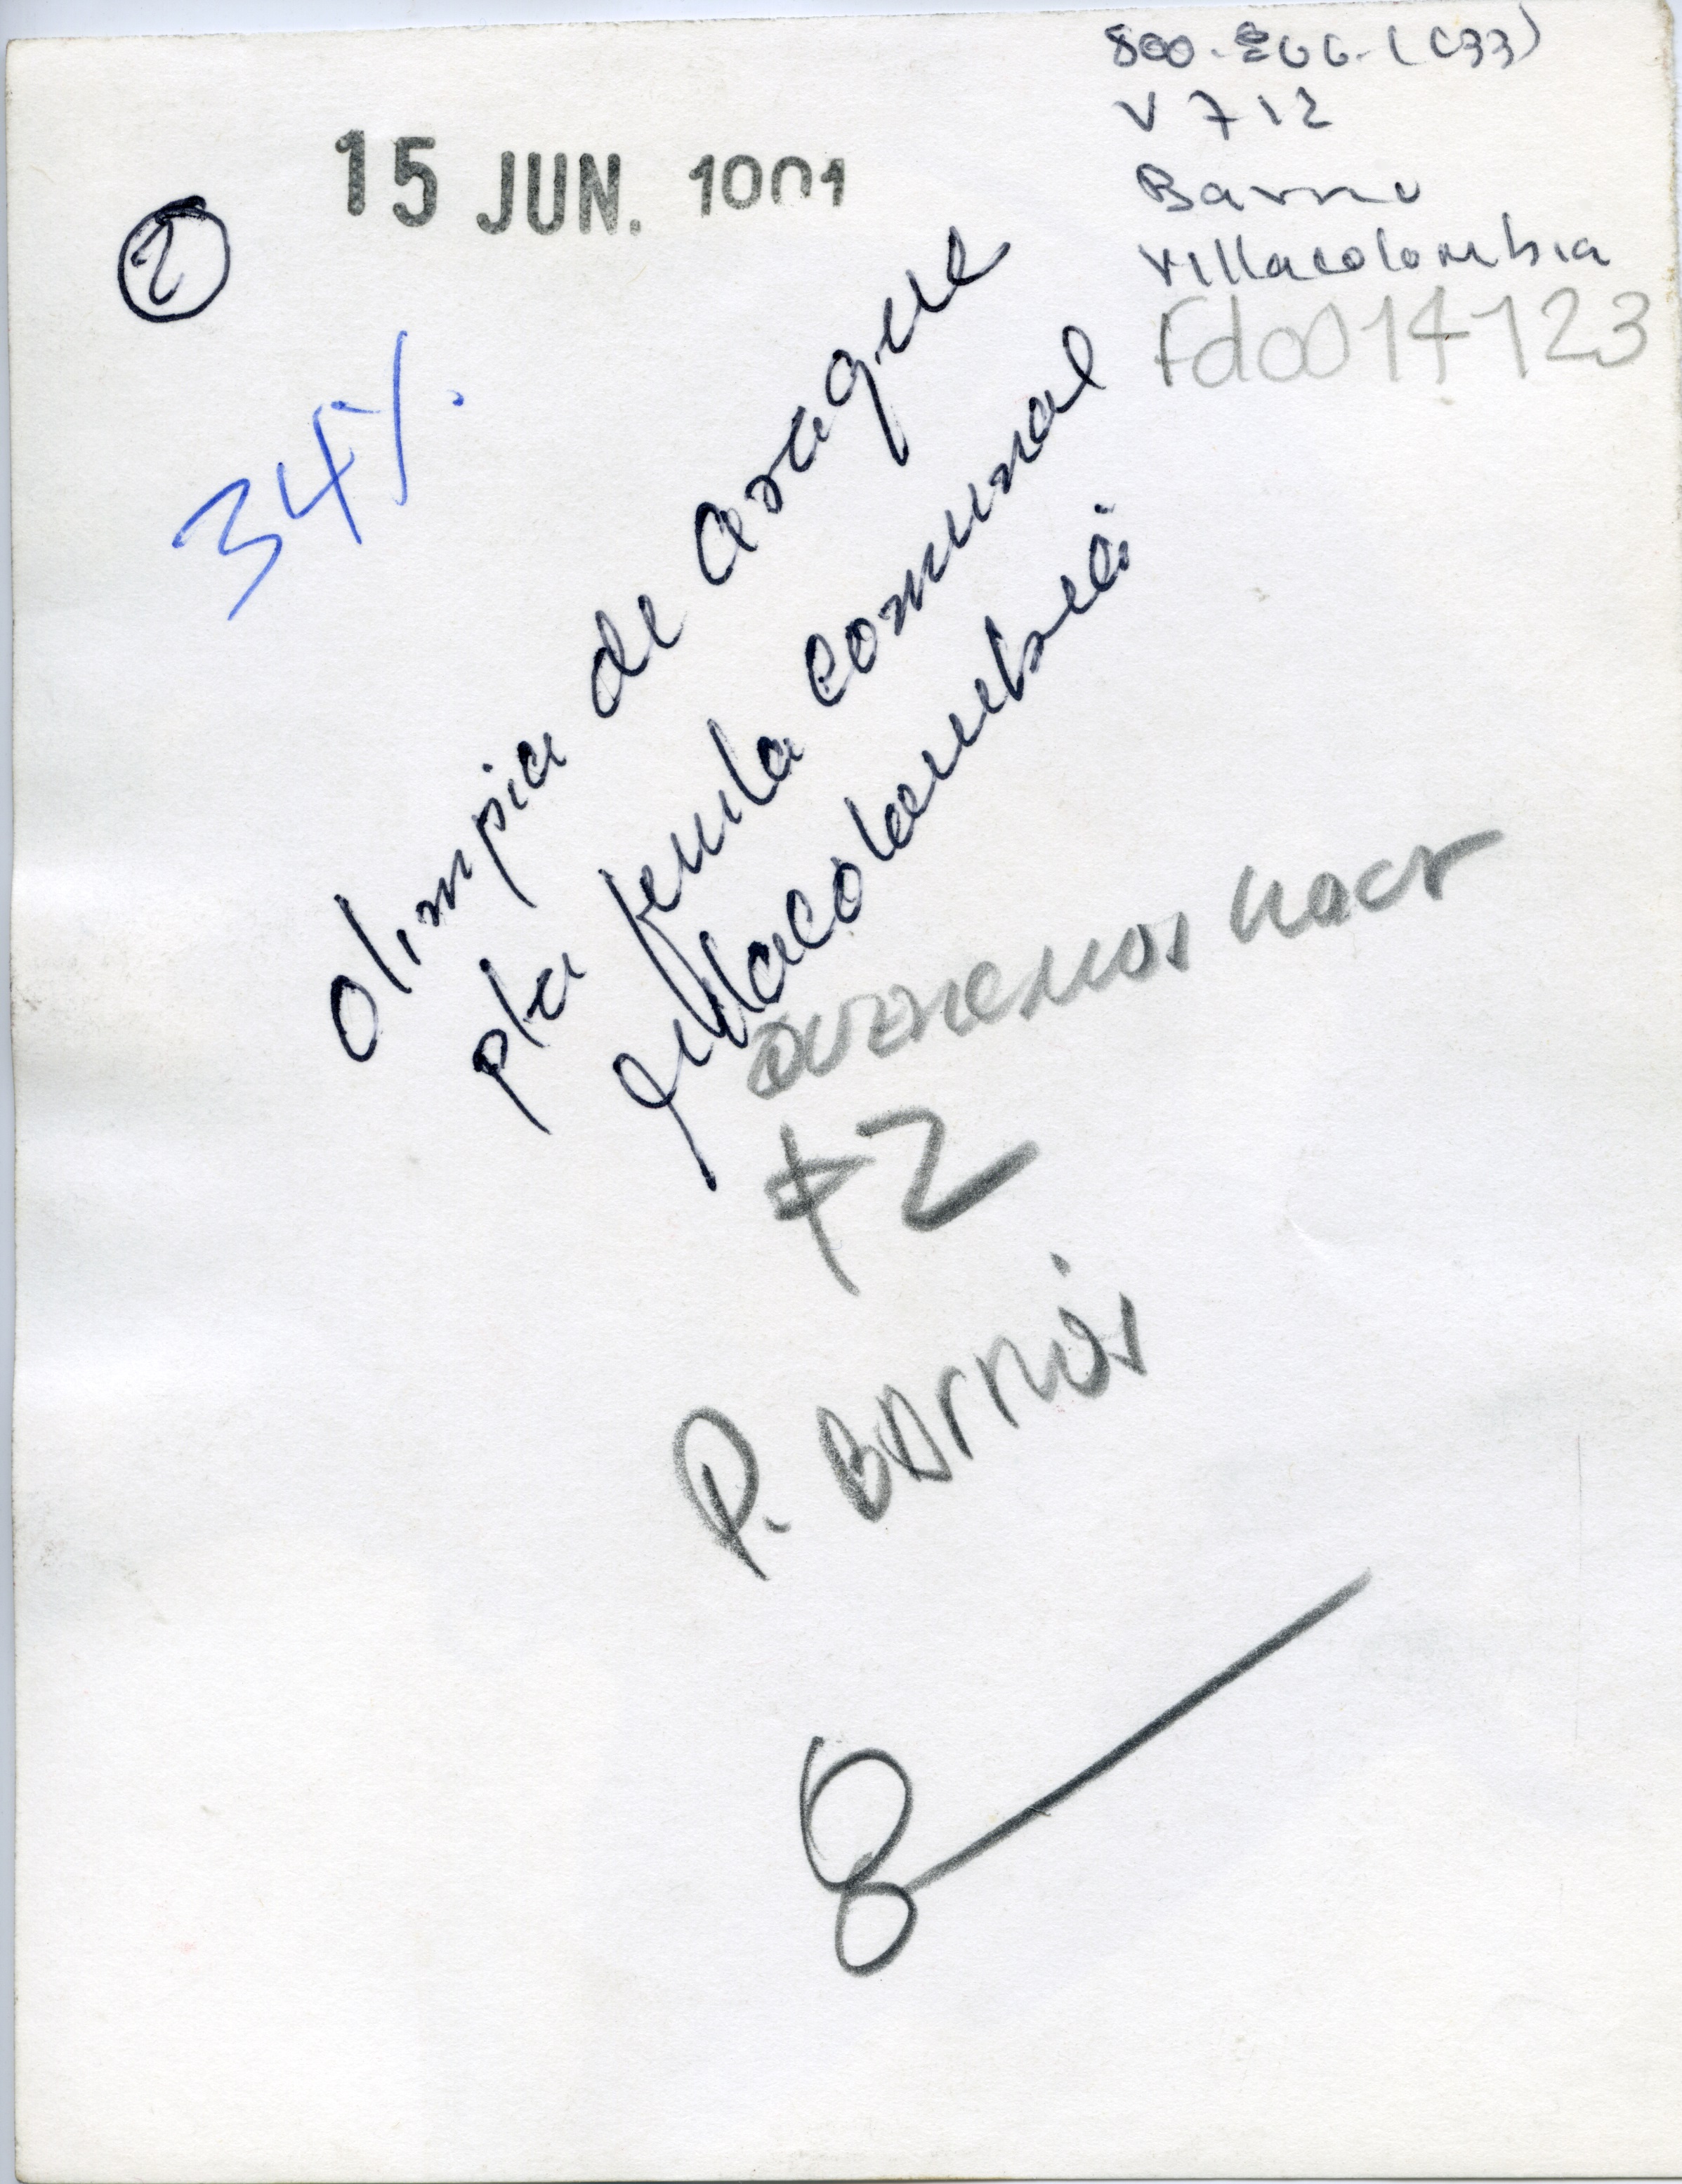 800-266-(C33)
V712
Barrio
Villacolombia
Fdo0014123
15 JUN. 1991
2
34%
Olimpia de Araque
pta Junta comunal
Villacolombia
queremos hacer
#2
P. Barrios
8